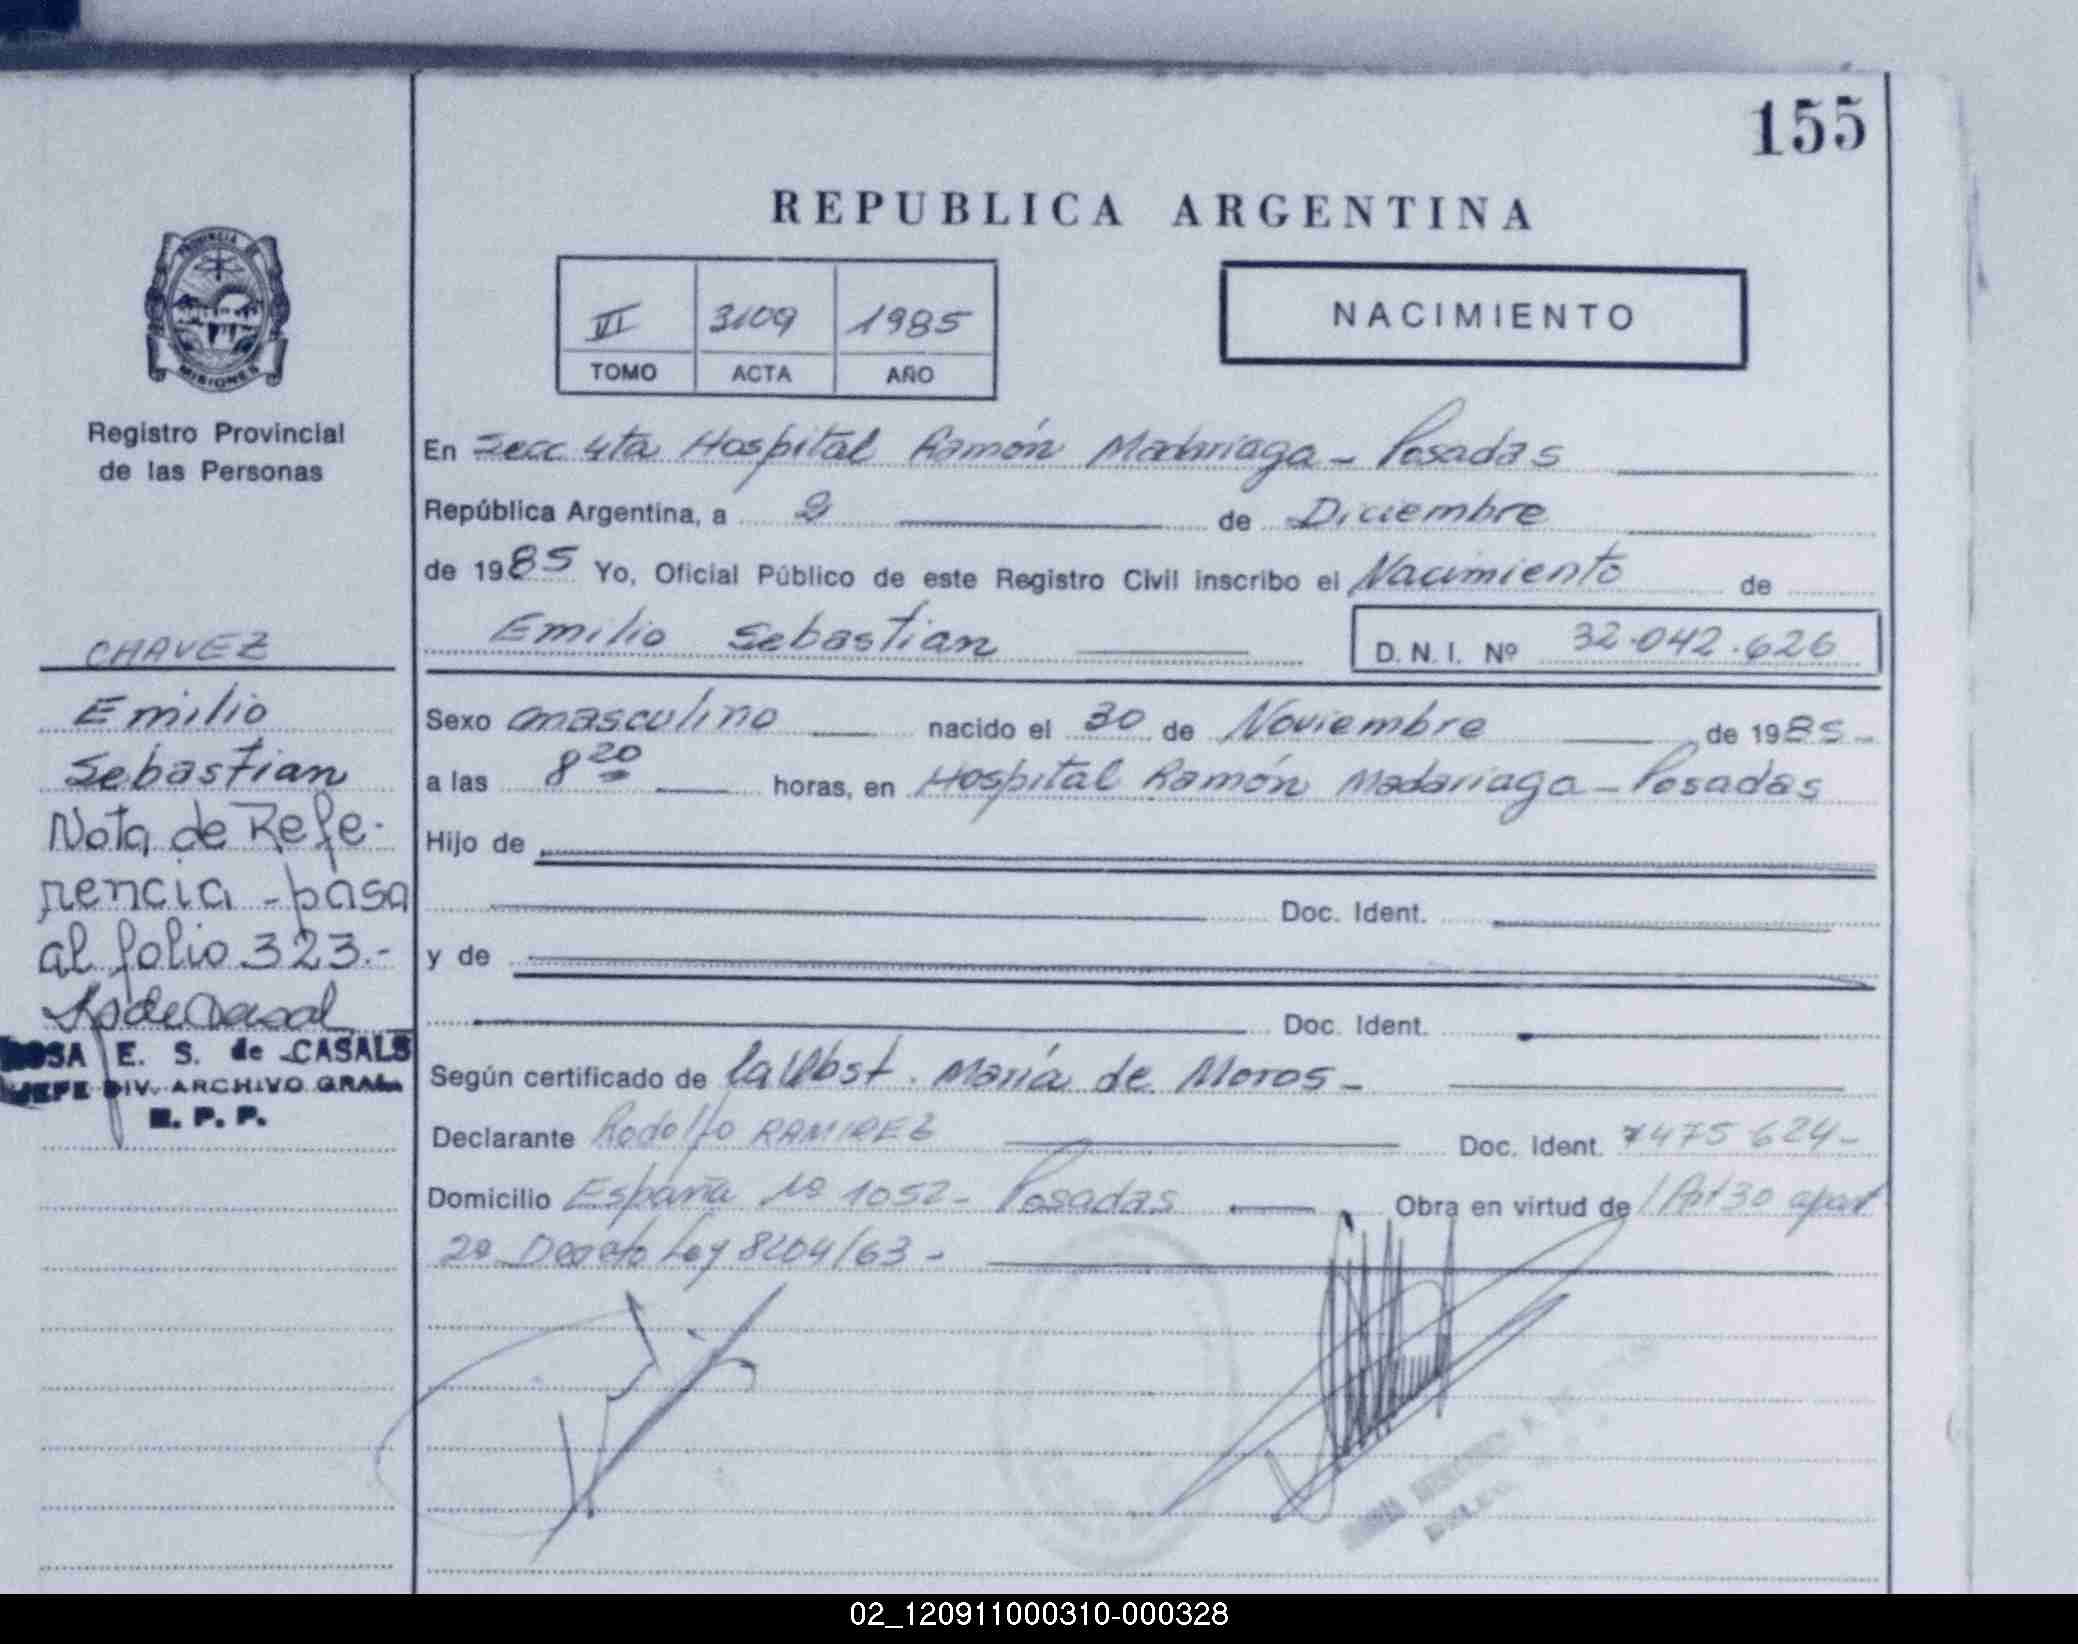 155
REPUBLICA ARGENTINA
VI 3109 1985
TOMO ACTA AÑO
NACIMIENTO
PROVINCIA DE
MISIONES
Registro Provincial
de las Personas
En Secc 4ta Hospital Ramón Madariaga - Posadas
República Argentina, a 2 de Diciembre
de 1985 Yo, Oficial Público de este Registro Civil inscribo el Nacimiento de
Emilio Sebastian D. N. I. Nº 32.042.626
Sexo masculino nacido el 30 de Noviembre de 1985-
a las 8 20 horas, en Hospital Ramón Madariaga - Posadas
Hijo de
Doc. Ident.
y de
Doc. Ident.
Según certificado de la Obst. María de Moros -
Declarante Rodolfo RAMIREZ Doc. Ident. 7475624-
Domicilio España Nº 1052- Posadas Obra en virtud de Art 30 apart
2º Decreto Ley 8204/63 -
CHAVEZ
Emilio
Sebastian
Nota de Refe-
rencia - pasa
al folio 323.-
ROSA E. S. de CASALS
JEFE DIV. ARCHIVO GRAL.
R. P. P.
02_120911000310-000328